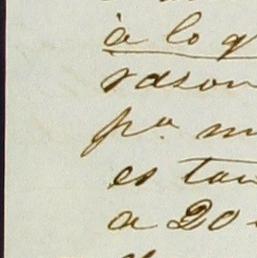 à lo q
rason
p.ª m
es tan
a 20